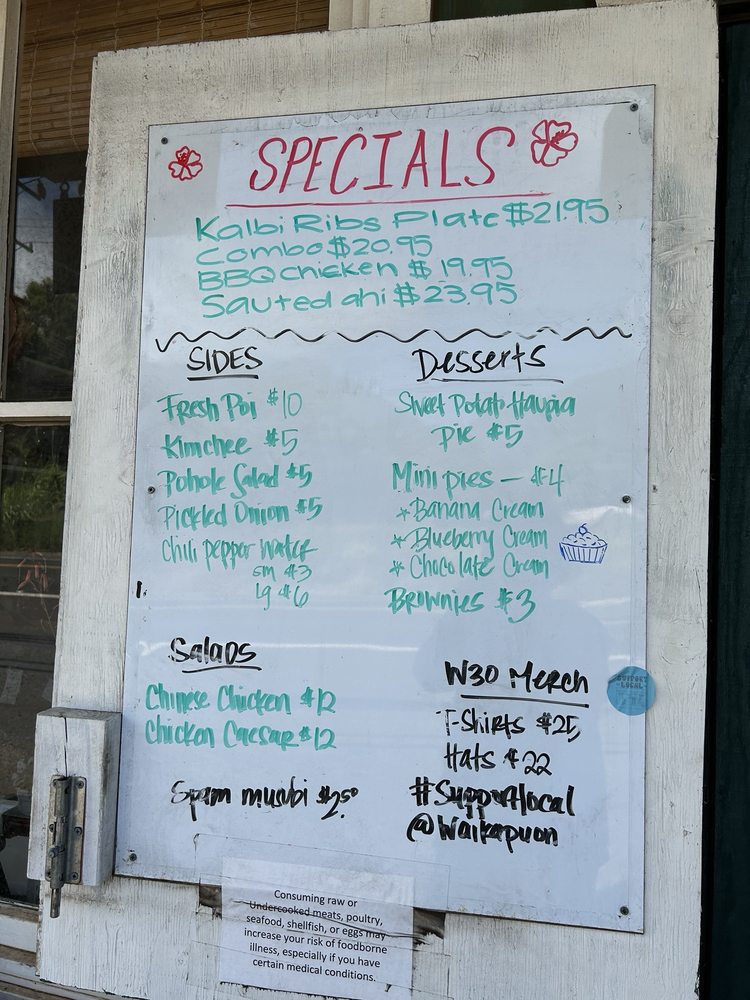 SPECIALS
Kalbi Ribs Plate $21.95
Combo $20.95
BBQ chicken $19.95
Sauted ahi $23.95
SIDES
Fresh Poi $10
Kimchee $5
Pohole Salad $5
Pickled Onion $5
Chili pepper water
sm $3
lg $6
Desserts
Sweet Potato Haupia
pie $5
Mini pies - $4
*Banana Cream
*Blueberry Cream
*Chocolate Cream
Brownies $3
Salads
Chinese Chicken $12
Chicken Caesar $12
Spam musubi $2.50
W30 Merch
T-Shirts $25
Hats $22
#Supportlocal
@Waikapuon
SUPPORT
-LOCAL-
Consuming raw or
Undercooked meats, poultry,
seafood, shellfish, or eggs may
increase your risk of foodborne
illness, especially if you have
certain medical conditions.